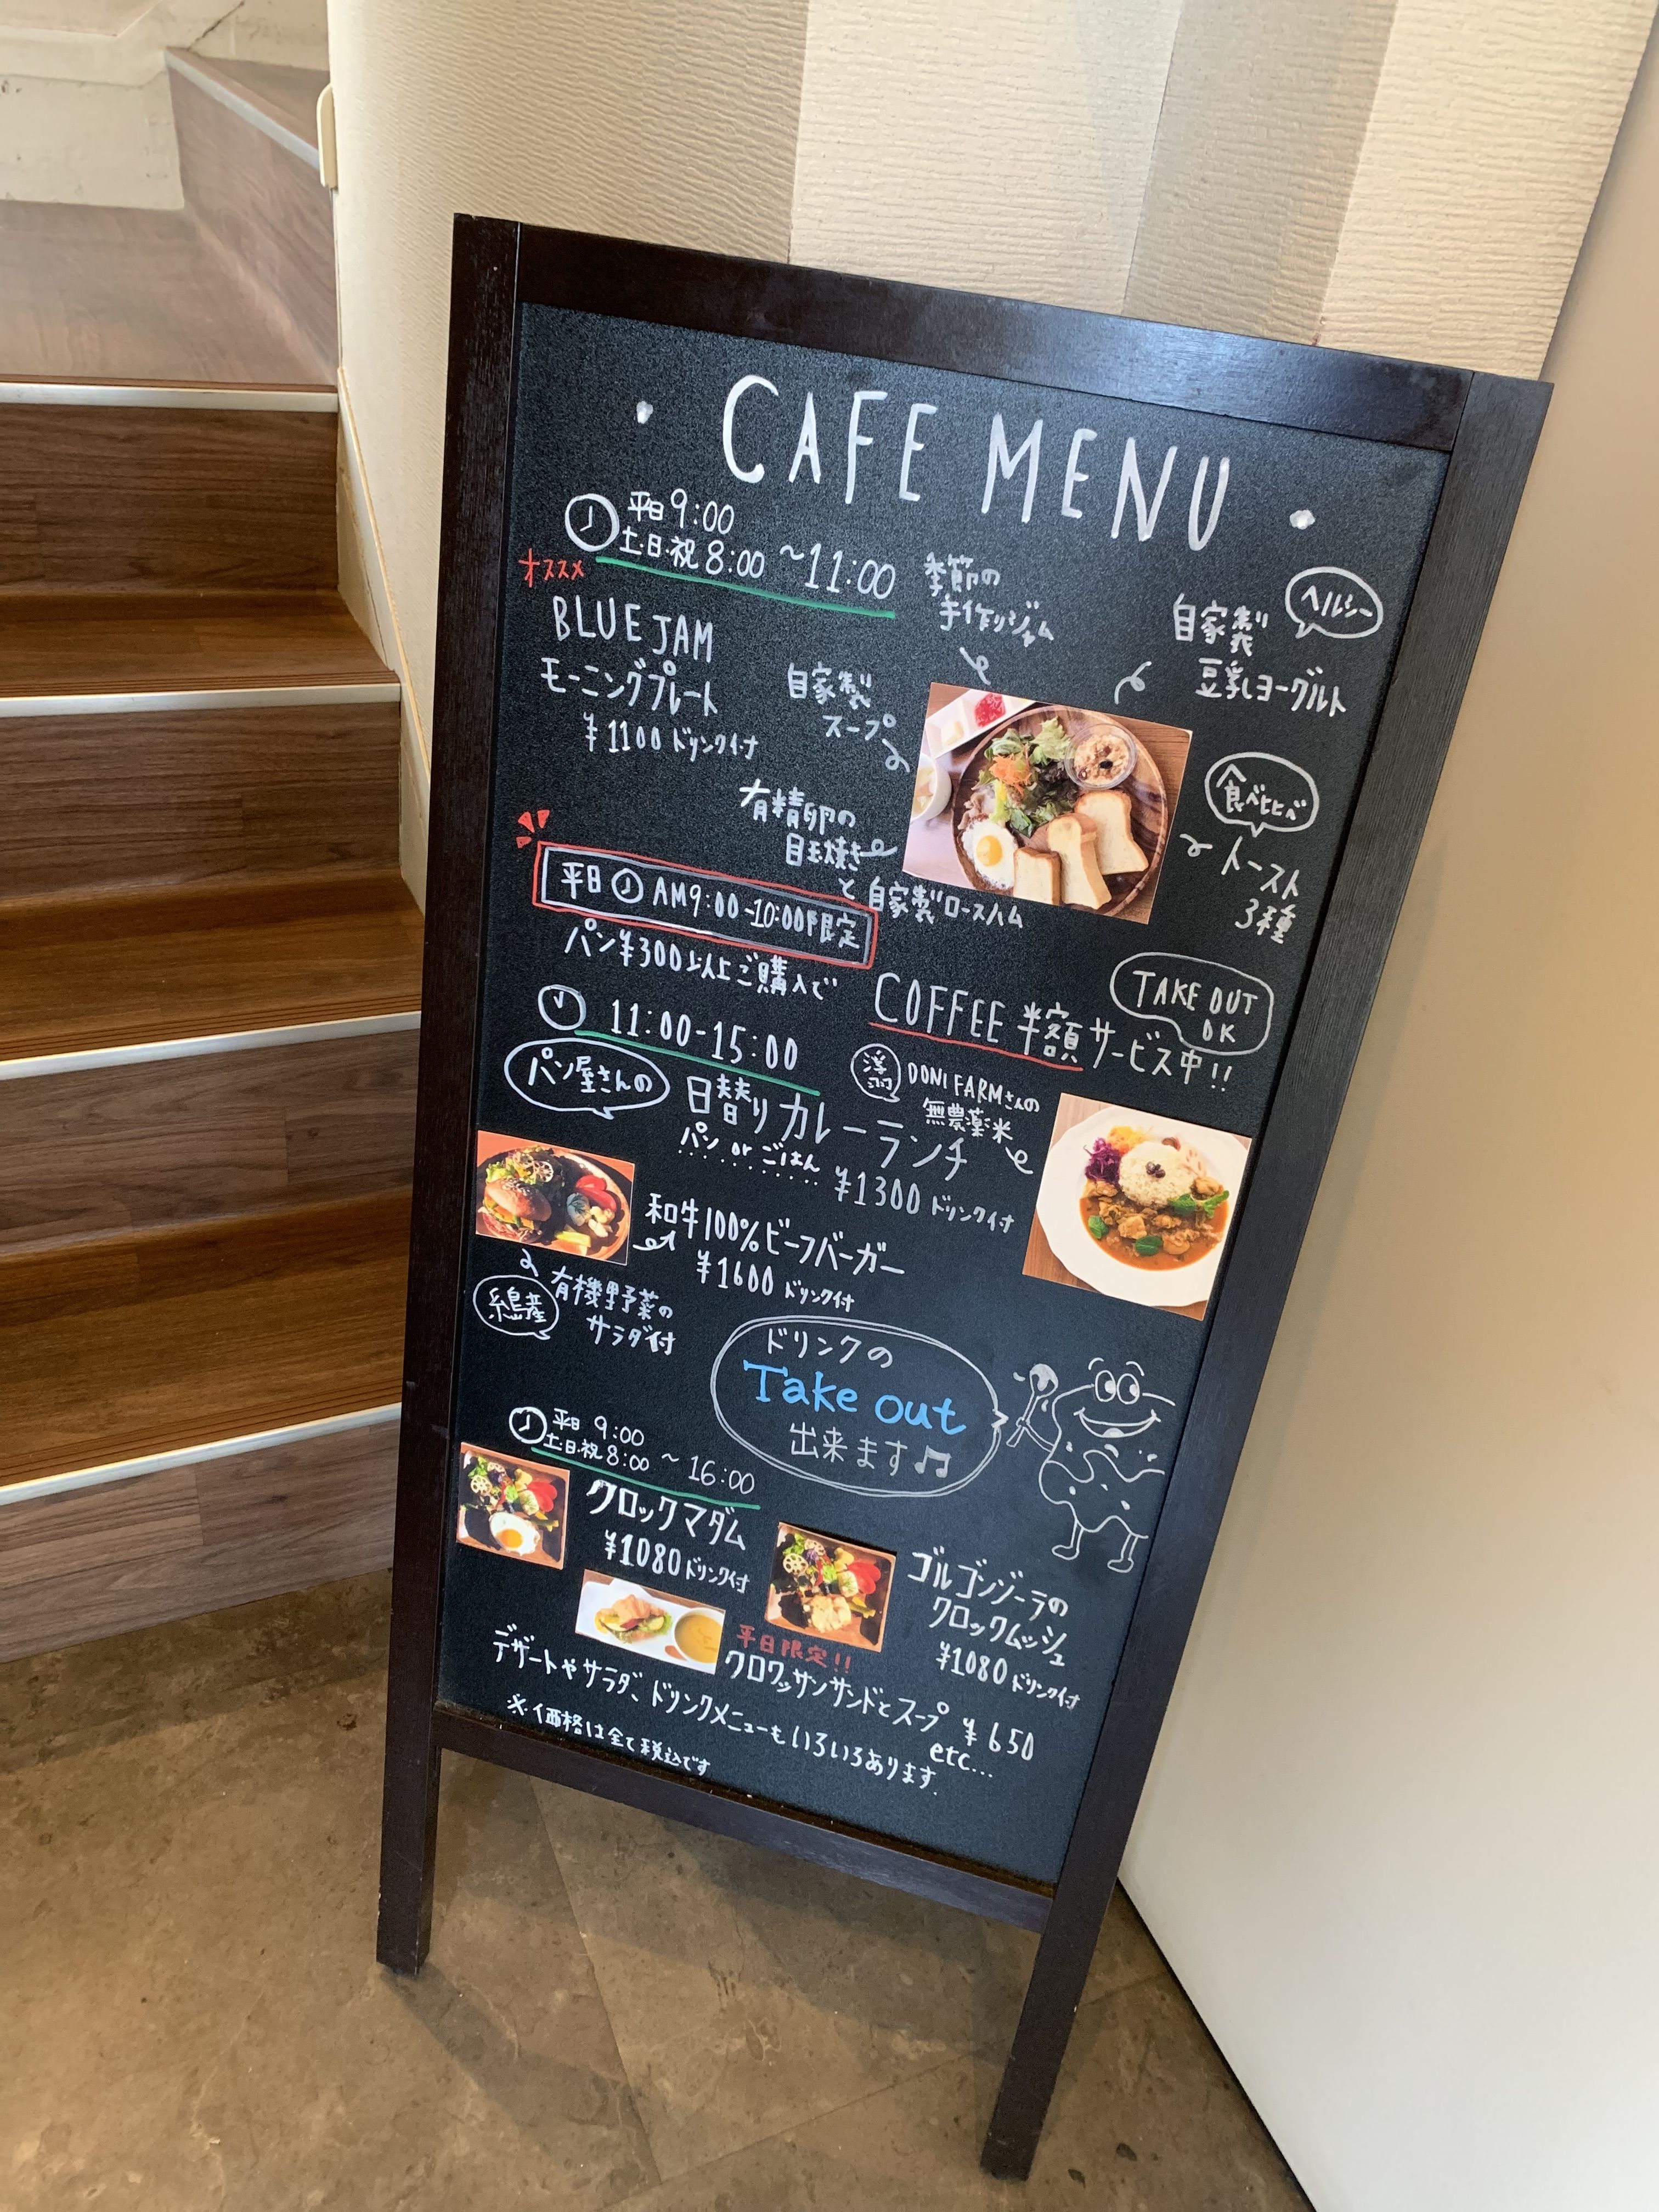 ・CAFE MENU・
平日 9:00
土・日・祝 8:00 ～11:00
オススメ
BLUE JAM
モーニングプレート
¥1100 ドリンク付
季節の
手作りジャム
ヘルシー
自家製
豆乳ヨーグルト
自家製
スープ
有精卵の
目玉焼き
と自家製ロースハム
食べヒヒ
トースト
3種
平日 AM9:00-10:00限定
パン¥300以上ご購入で
COFFEE 半額サービス中!!
TAKE OUT
OK
11:00-15:00
パン屋さんの
日替りカレーランチ
パン or ごはん
¥1300 ドリンク付
浮羽
DONI FARMさんの
無農薬米
和牛100%ビーフバーガー
¥1600 ドリンク付
糸島産
有機野菜の
サラダ付
ドリンクの
Take out
出来ます♫
平日 9:00
土・日・祝 8:00 ～ 16:00
クロックマダム
¥1080 ドリンク付
ゴルゴンゾーラの
クロックムッシュ
¥1080 ドリンク付
平日限定!!
クロワッサンサンドとスープ ¥650
デザートやサラダ、ドリンクメニューもいろいろあります
etc...
※価格は全て税込です